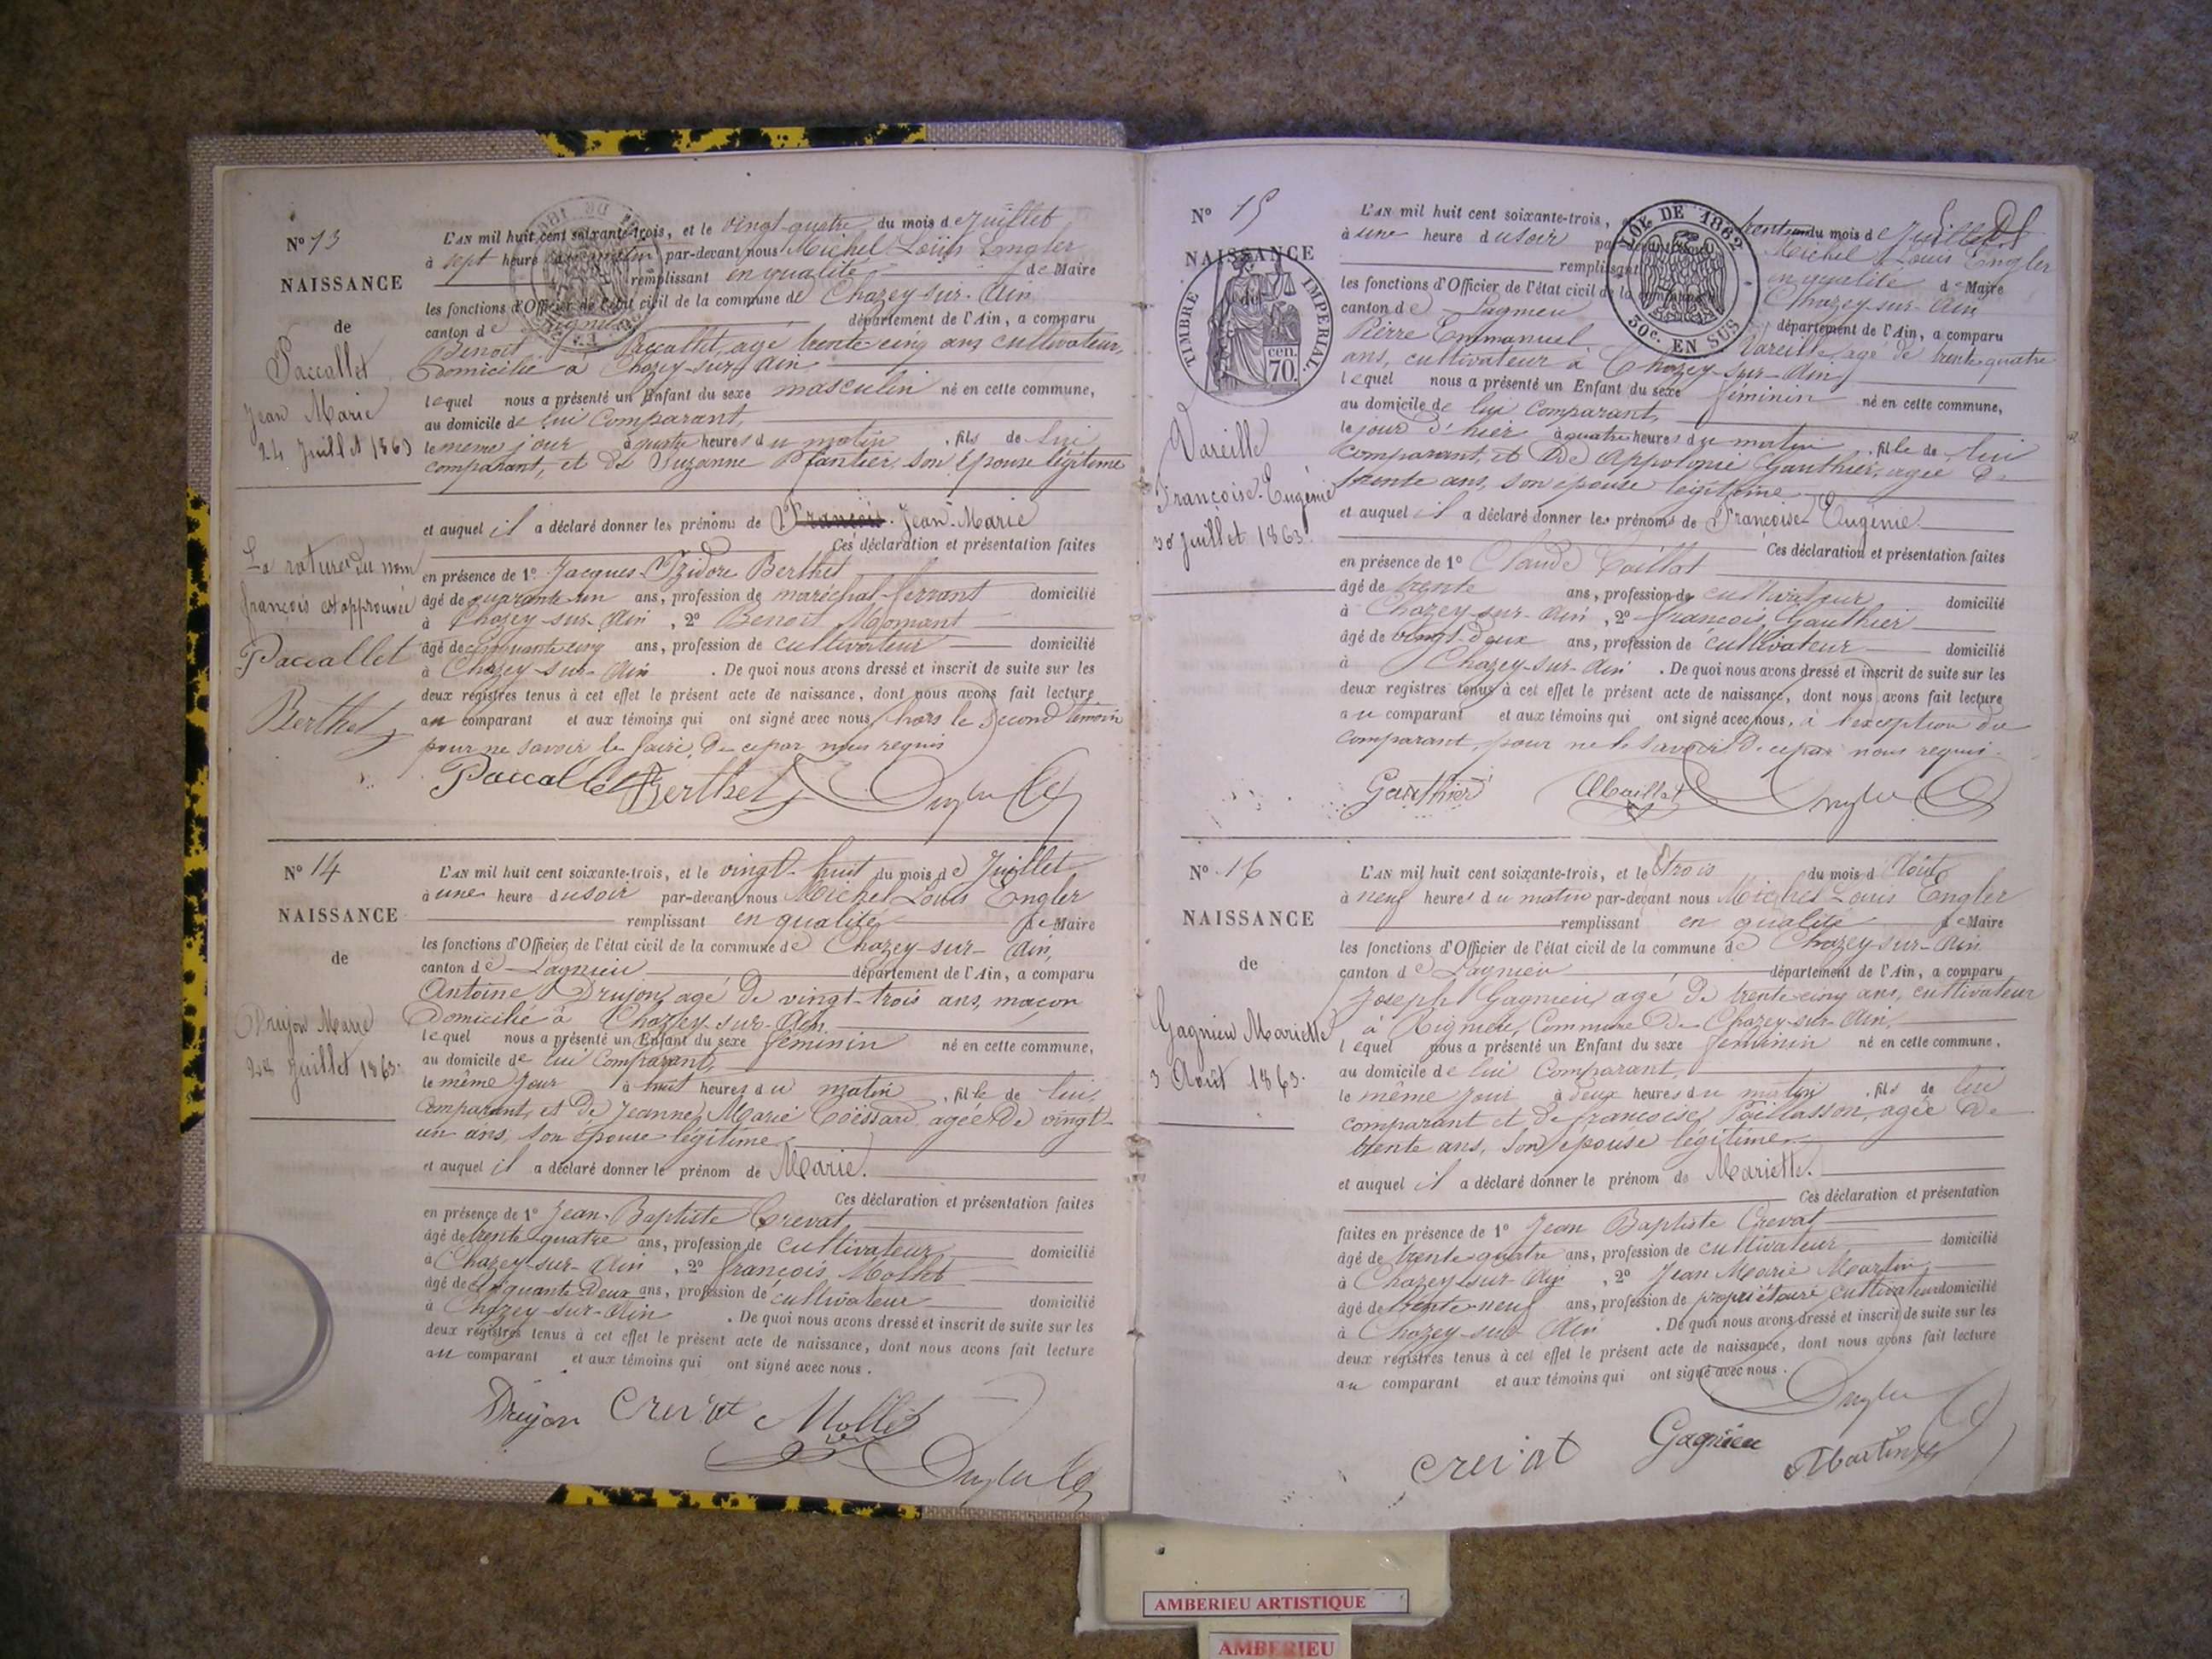 N° 13
NAISSANCE
de
Paccallet
Jean Marie
24 Juillet 1863
L'AN mil huit cent soixante-trois, et le vingt-quatre du mois de Juillet
à sept heures du matin par-devant nous Michel Louis Engler
remplissant en qualité de Maire
les fonctions d'Officier de l'état civil de la commune de Chazey-sur-Ain
canton de Lagnieu département de l'Ain, a comparu
Benoit Paccallet, agé trente cinq ans cultivateur,
Domicilié à Chazey-sur-Ain
lequel nous a présenté un Enfant du sexe masculin né en cette commune,
au domicile de lui Comparant,
le même jour à quatre heures du matin, fils de lui
comparant, et de Suzanne Plantier, son Epouse légitime
et auquel il a déclaré donner les prénoms de François Jean-Marie
Ces déclaration et présentation faites
La rature du nom
françois est approuvée
Paccallet
Berthet
en présence de 1° Jacques-Izidore Berthet
âgé de quarante un ans, profession de maréchal-ferrant domicilié
à Chazey-sur-Ain, 2° Benoit Momant
âgé de cinquante cinq ans, profession de cultivateur domicilié
à Chazey-sur-Ain. De quoi nous avons dressé et inscrit de suite sur les
deux registres tenus à cet effet le présent acte de naissance, dont nous avons fait lecture
au comparant et aux témoins qui ont signé avec nous, hors le second témoin
pour ne savoir le faire de ce par nous requis
Paccallet Berthet Engler
N° 14
NAISSANCE
de
Drujon Marie
28 Juillet 1863.
L'AN mil huit cent soixante-trois, et le vingt-huit du mois de Juillet
à une heure du soir par-devant nous Michel Louis Engler
remplissant en qualité de Maire
les fonctions d'Officier de l'état civil de la commune de Chazey-sur-Ain,
canton de Lagnieu département de l'Ain, a comparu
Antoine Drujon, agé de vingt-trois ans, maçon
Domicilié à Chazey-sur-Ain
lequel nous a présenté un Enfant du sexe féminin né en cette commune,
au domicile de lui Comparant,
le même jour à huit heures du matin, fille de lui,
Comparant, et de Jeanne Marie Coëssard, agée de vingt-
un ans, son épouse légitime
et auquel il a déclaré donner le prénom de Marie.
Ces déclaration et présentation faites
en présence de 1° Jean-Baptiste Crevat
âgé de trente quatre ans, profession de cultivateur domicilié
à Chazey-sur-Ain, 2° françois Mollet
âgé de cinquante deux ans, profession de cultivateur domicilié
à Chazey-sur-Ain. De quoi nous avons dressé et inscrit de suite sur les
deux registres tenus à cet effet le présent acte de naissance, dont nous avons fait lecture
au comparant et aux témoins qui ont signé avec nous.
Drujon Crevat Mollet
Engler
N° 15
NAISSANCE
de
TIMBRE IMPERIAL
cen. 70.
LOI DE 1862
30c. EN SUS
Vareille
Françoise-Eugénie
30 Juillet 1863.
L'AN mil huit cent soixante-trois, trente un du mois de Juillet
à une heure du soir par-devant nous Michel Louis Engler
remplissant en qualité de Maire
les fonctions d'Officier de l'état civil de la commune Chazey-sur-Ain
canton de Lagnieu département de l'Ain, a comparu
Pierre Emmanuel Vareille, agé de trente quatre
ans, cultivateur à Chazey-sur-Ain
lequel nous a présenté un Enfant du sexe féminin né en cette commune,
au domicile de lui Comparant,
le jour d'hier à quatre heures du matin, fille de lui
comparant, et de Appolonie Gauthier, agée de
trente ans, son épouse légitime
et auquel il a déclaré donner les prénoms de Françoise-Eugénie.
Ces déclaration et présentation faites
en présence de 1° Claude Caillat
âgé de trente ans, profession de cultivateur domicilié
à Chazey-sur-Ain, 2° françois Gauthier
âgé de vingt-deux ans, profession de cultivateur domicilié
à Chazey-sur-Ain. De quoi nous avons dressé et inscrit de suite sur les
deux registres tenus à cet effet le présent acte de naissance, dont nous avons fait lecture
au comparant et aux témoins qui ont signé avec nous, à l'exception du
comparant, pour ne le savoir de ce par nous requis.
Gauthier Engler
N° 16
NAISSANCE
de
Gagnieu Mariette
3 Août 1863.
L'AN mil huit cent soixante-trois, et le trois du mois d'Août
à neuf heures du matin par-devant nous Michel Louis Engler
remplissant en qualité de Maire
les fonctions d'Officier de l'état civil de la commune de Chazey-sur-Ain
canton de Lagnieu département de l'Ain, a comparu
Joseph Gagnieu, agé de trente cinq ans, cultivateur
à Rignieu, Commune de Chazey-sur-Ain,
lequel nous a présenté un Enfant du sexe féminin né en cette commune,
au domicile de lui Comparant,
le même jour à deux heures du matin, fils de lui
comparant et de françoise Paillasson, agée de
trente ans, son épouse légitime.
et auquel il a déclaré donner le prénom de Mariette.
Ces déclaration et présentation
faites en présence de 1° Jean Baptiste Crevat
âgé de trente quatre ans, profession de cultivateur domicilié
à Chazey-sur-Ain, 2° Jean Marie Martin
âgé de trente-neuf ans, profession de propriétaire cultivateur domicilié
à Chazey-sur-Ain. De quoi nous avons dressé et inscrit de suite sur les
deux registres tenus à cet effet le présent acte de naissance, dont nous avons fait lecture
au comparant et aux témoins qui ont signé avec nous.
Engler
Crevat Gagnieu Martin
AMBERIEU ARTISTIQUE
AMBERIEU